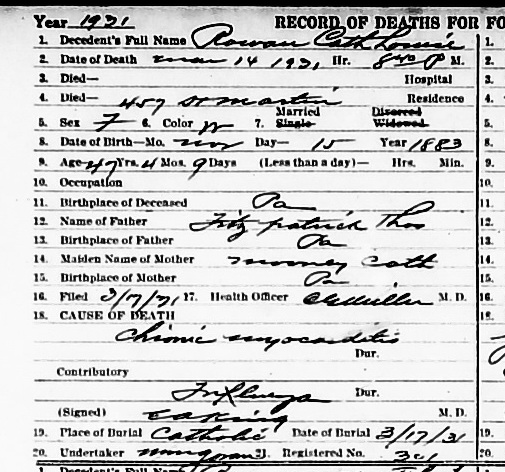 Year 1931 RECORD OF DEATHS FOR FO
1. Decedent's Full Name Rowan Cath Louise 1.
2. Date of Death Mar 14 1931 Hr. 8 40 P M. 2.
3. Died— Hospital 3.
4. Died— 457 W Martin Residence 4.
5. Sex F 6. Color W 7. Married Single Divorced Widowed 5.
8. Date of Birth—Mo. Nov Day— 15 Year 1883 8.
9. Age 47 Yrs. 4 Mos. 9 Days (Less than a day)— Hrs. Min. 9.
10. Occupation 10.
11. Birthplace of Deceased Pa 11.
12. Name of Father Fitzpatrick Thos 12.
13. Birthplace of Father Pa 13.
14. Maiden Name of Mother Mooney Cath 14.
15. Birthplace of Mother Pa 15.
16. Filed 3/17/31 17. Health Officer Miller M. D. 16.
18. CAUSE OF DEATH 18.
Chronic myocarditis
Dur.
Contributory
Influenza Dur.
(Signed) King M. D.
19. Place of Burial Catholic Date of Burial 3/17/31 19.
20. Undertaker 21. Registered No. 20.
1. Decedent's Full Name 1.